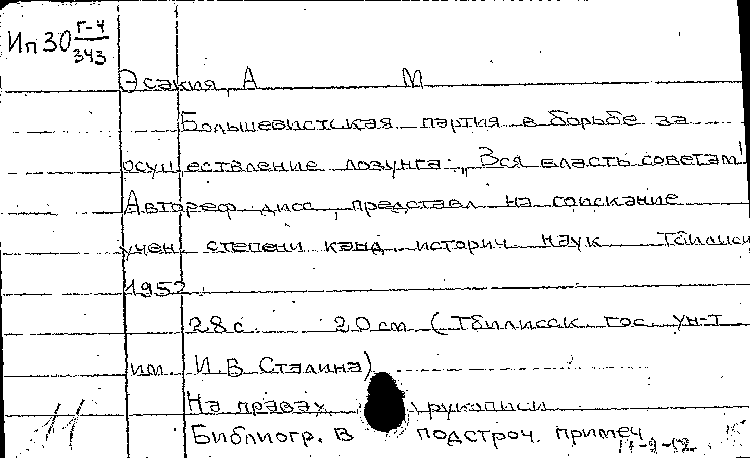 Ип 30 Г-4/343
Эсакия, А М
Большевистская партия в борьбе за
осуществление лозунга: „Вся власть советам!
Автореф. дисс., представл. на соискание
учен. степени канд. историч. наук Тбилиси
1952.
28 с. 20 см (Тбилисск. гос. ун-т
им. И. В. Сталина)
На правах рукописи
Библиогр. в подстроч. примеч.
11